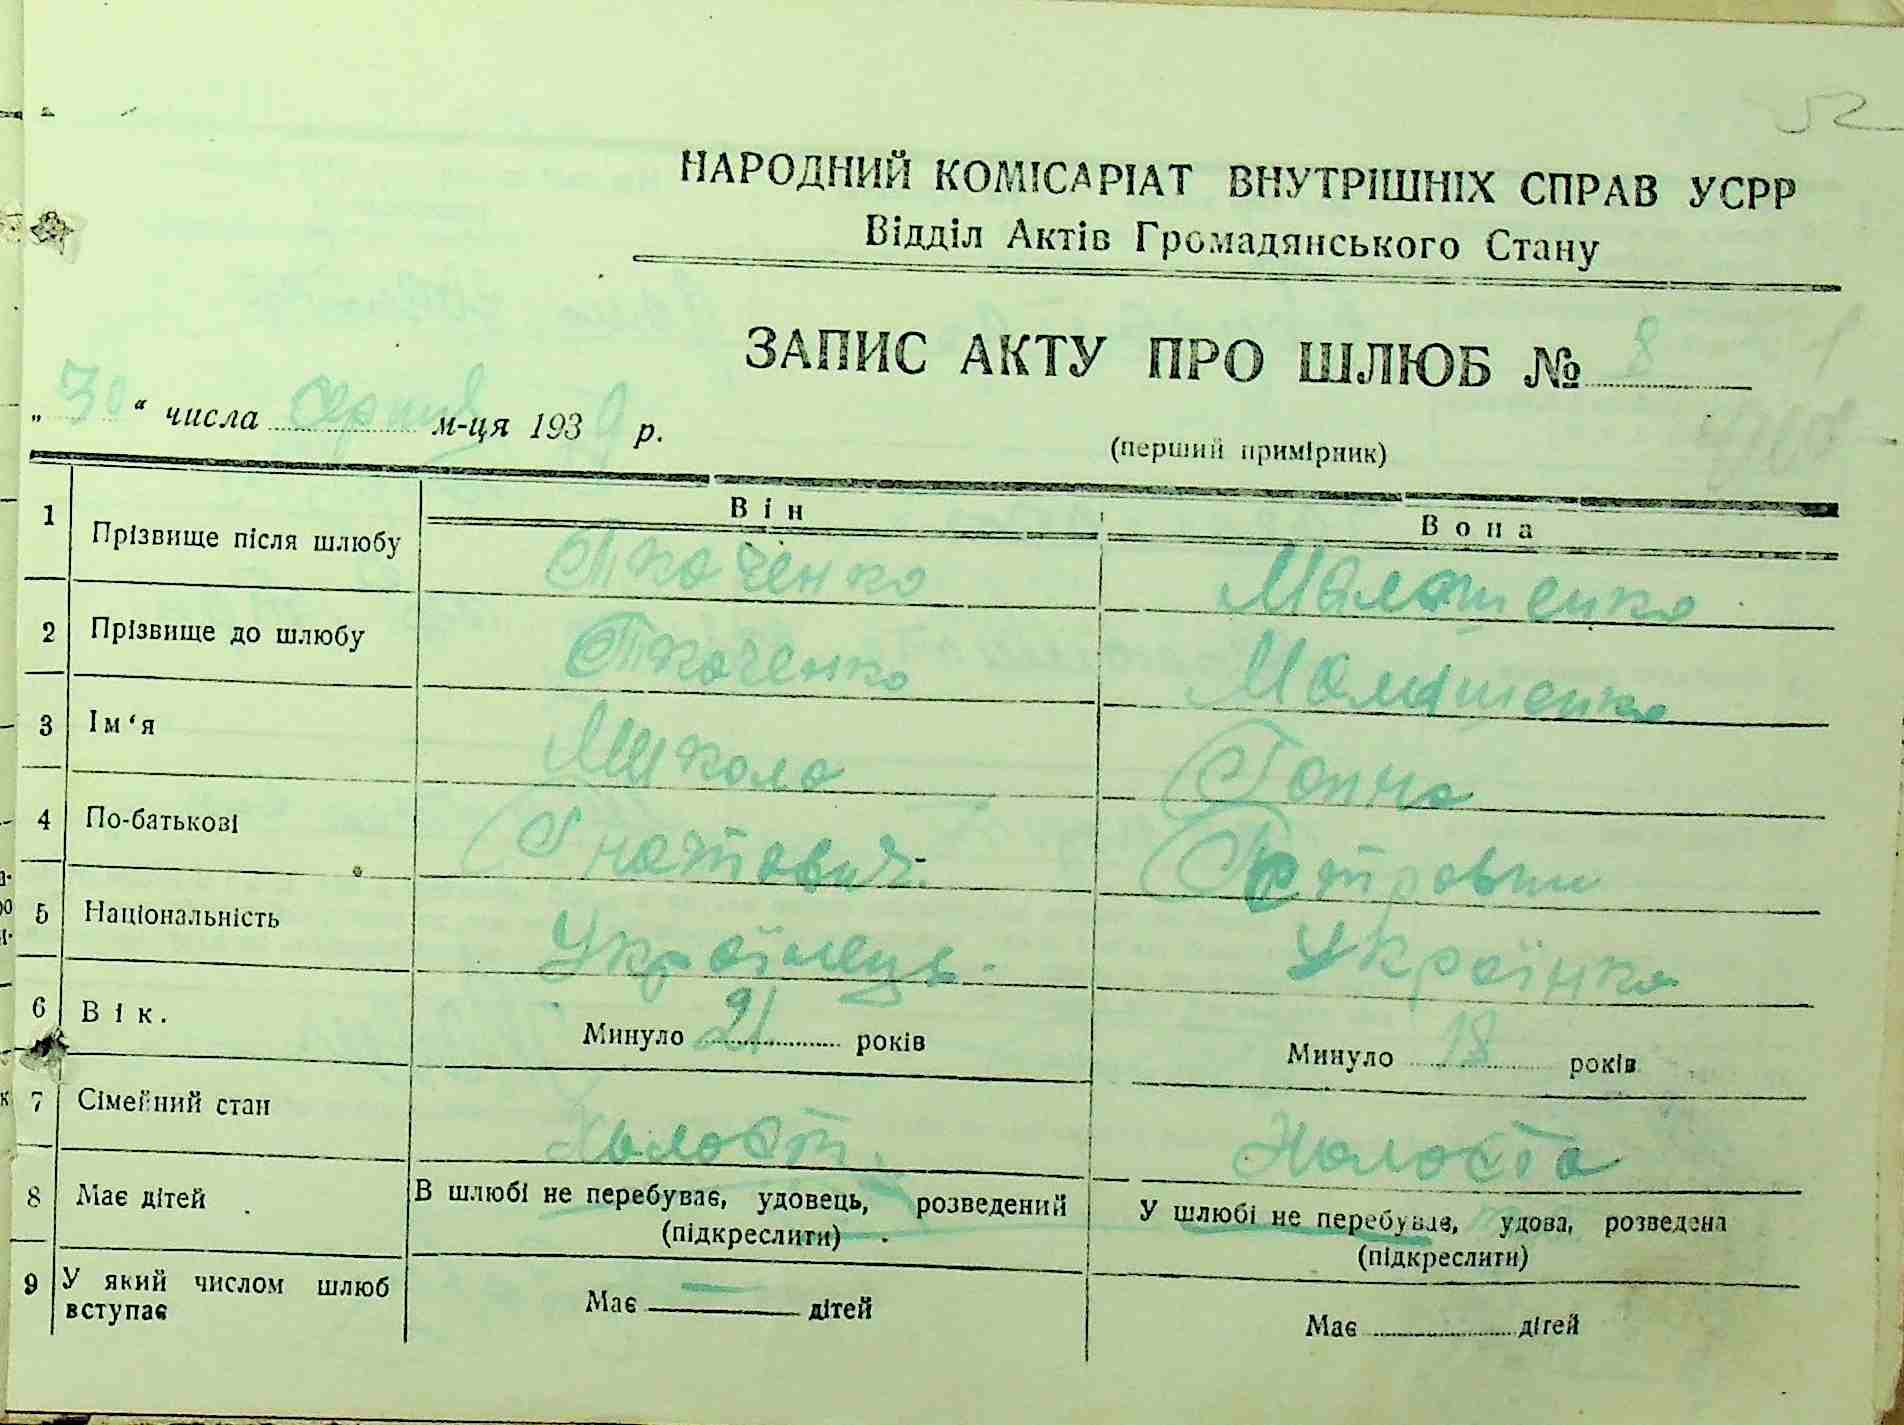 52
НАРОДНИЙ КОМІСАРІАТ ВНУТРІШНІХ СПРАВ УСРР
Відділ Актів Громадянського Стану
ЗАПИС АКТУ ПРО ШЛЮБ № 8
„ 30 “ числа серпня м-ця 1939 р.
(перший примірник)
Він Вона
1 Прізвище після шлюбу Ткаченко Малашенко
2 Прізвище до шлюбу Ткаченко Малашенко
3 Ім‘я Микола Ганна
4 По-батькові Гнатович Петровна
5 Національність Українець Українка
6 Вік. Минуло 21 років Минуло 18 років
7 Сімейний стан Холост. Холоста
8 Має дітей В шлюбі не перебуває, удовець, розведений (підкреслити) У шлюбі не перебуває, удова, розведена (підкреслити)
9 У який числом шлюб вступає Має — дітей Має дітей